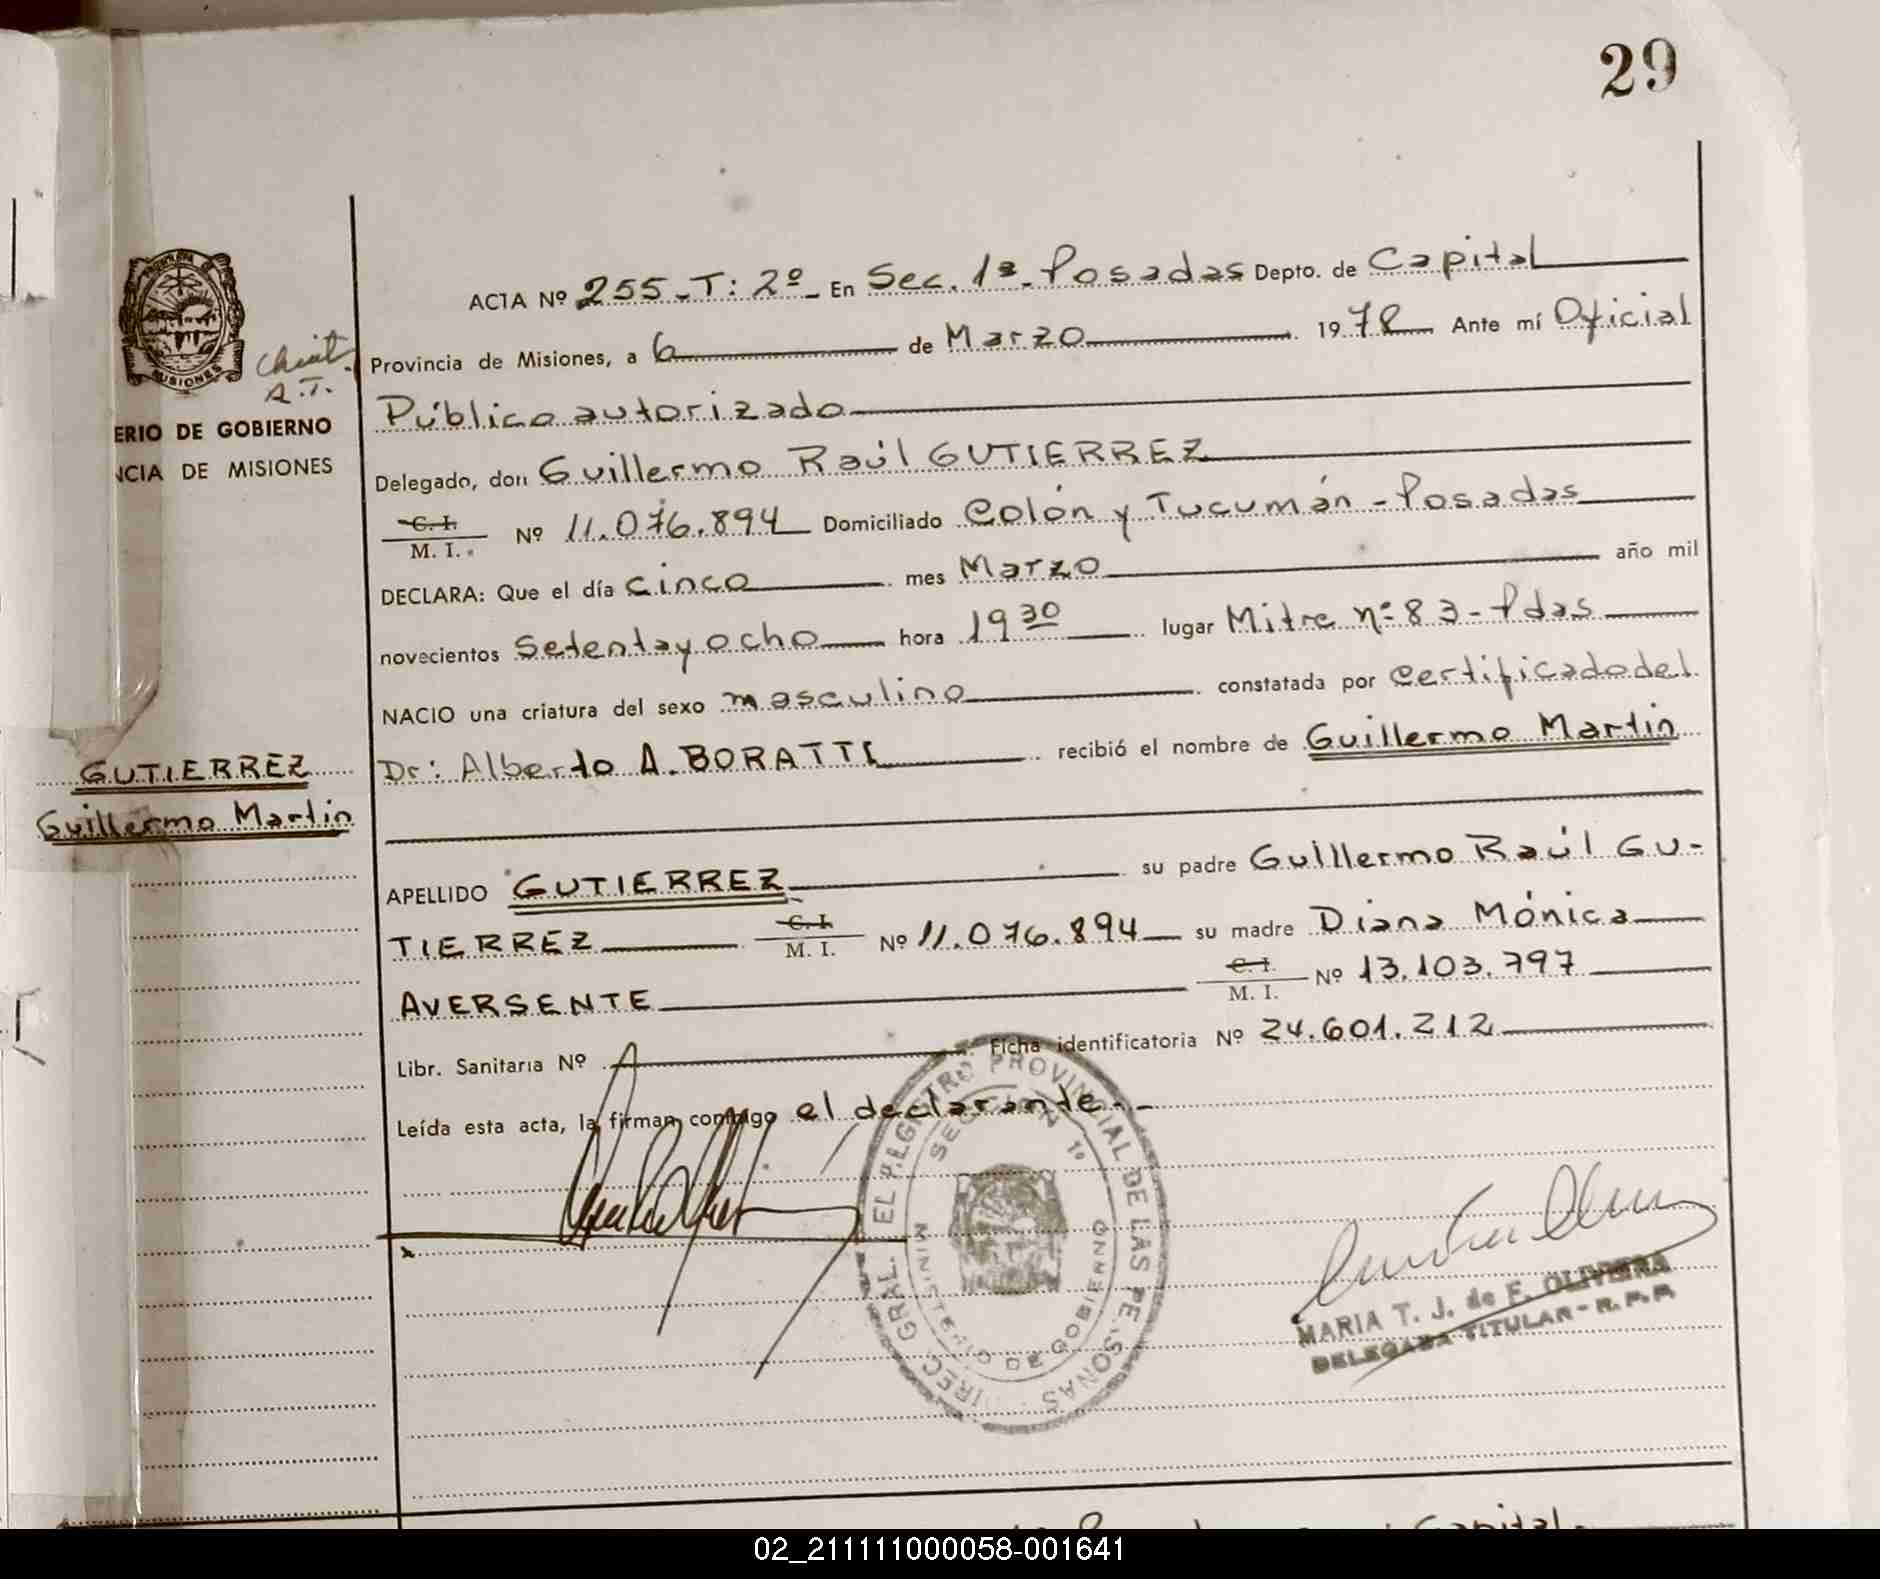 29
ACTA Nº 255-T: 2º- En Sec. 1ª- Posadas Depto. de Capital
Provincia de Misiones, a 6 de Marzo 1978 Ante mí Oficial
Público autorizado
Delegado, don Guillermo Raúl GUTIERREZ
C. I.
M. I. Nº 11.076.894 Domiciliado Colón y Tucumán - Posadas
DECLARA: Que el día cinco mes Marzo año mil
novecientos setenta y ocho hora 19 30 lugar Mitre nº 83 - Pdas
NACIO una criatura del sexo masculino constatada por certificado del
Dr: Alberto A. BORATTI recibió el nombre de Guillermo Martin
APELLIDO GUTIERREZ su padre Guillermo Raúl GU-
TIERREZ C. I. M. I. Nº 11.076.894 su madre Diana Mónica
AVERSENTE C. I. M. I. Nº 13.103.797
Libr. Sanitaria Nº Ficha identificatoria Nº 24.601.212
Leída esta acta, la firman conmigo el declarante.-
A.T.
MISIONES
ERIO DE GOBIERNO
NCIA DE MISIONES
GUTIERREZ
Guillermo Martin
DIREC. GRAL. DEL REGISTRO PROVINCIAL DE LAS PERSONAS
SECCION 1º
MINISTERIO DE GOBIERNO
MARIA T. J. de F. OLIVEIRA
DELEGADA TITULAR - R. P. P.
Capital
02_211111000058-001641